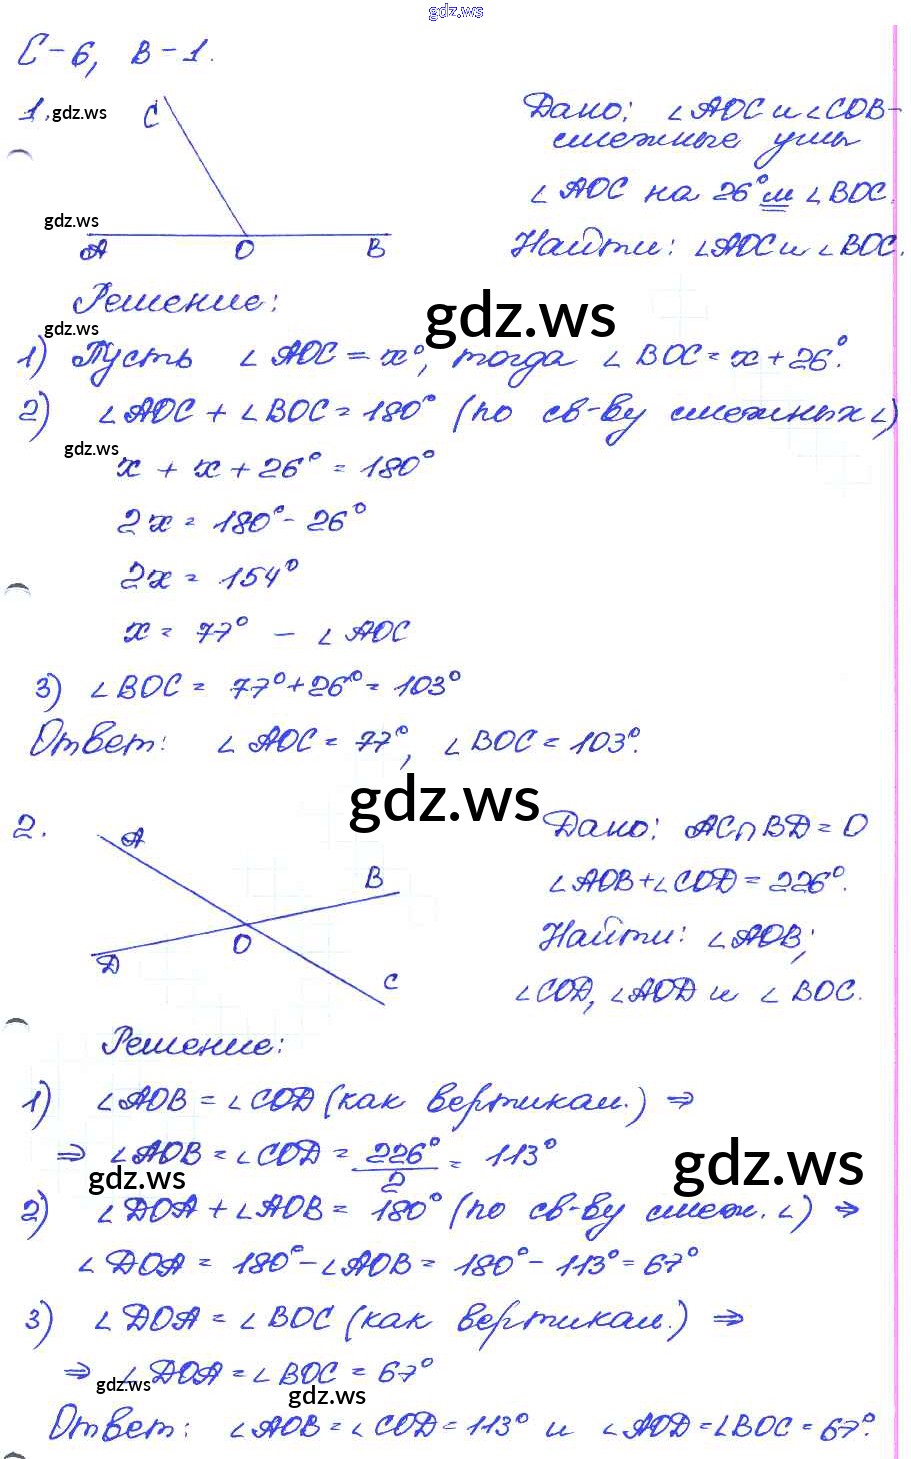 gdz.ws
С-6, В-1.
1. gdz.ws
C
A O B
gdz.ws
Дано: ∠AOC и ∠COB-
смежные углы
∠AOC на 26° м ∠BOC.
Найти: ∠AOC и ∠BOC.
Решение:
gdz.ws
gdz.ws
1) Пусть ∠AOC = x°, тогда ∠BOC = x + 26°.
2) ∠AOC + ∠BOC = 180° (по св-ву смежных ∠)
gdz.ws
x + x + 26° = 180°
2x = 180° - 26°
2x = 154°
x = 77° - ∠AOC
3) ∠BOC = 77° + 26° = 103°
Ответ: ∠AOC = 77°, ∠BOC = 103°.
gdz.ws
2.
A
B
O
D
C
Дано: AC∩BD = O
∠AOB + ∠COD = 226°.
Найти: ∠AOB;
∠COD, ∠AOD и ∠BOC.
Решение:
1) ∠AOB = ∠COD (как вертикал.) ⇒
⇒ ∠AOB = ∠COD = 226°/2 = 113°
gdz.ws
gdz.ws
2) ∠DOA + ∠AOB = 180° (по св-ву смеж. ∠) ⇒
∠DOA = 180° - ∠AOB = 180° - 113° = 67°
3) ∠DOA = ∠BOC (как вертикал.) ⇒
⇒ ∠DOA = ∠BOC = 67°
gdz.ws
gdz.ws
Ответ: ∠AOB = ∠COD = 113° и ∠AOD = ∠BOC = 67°.